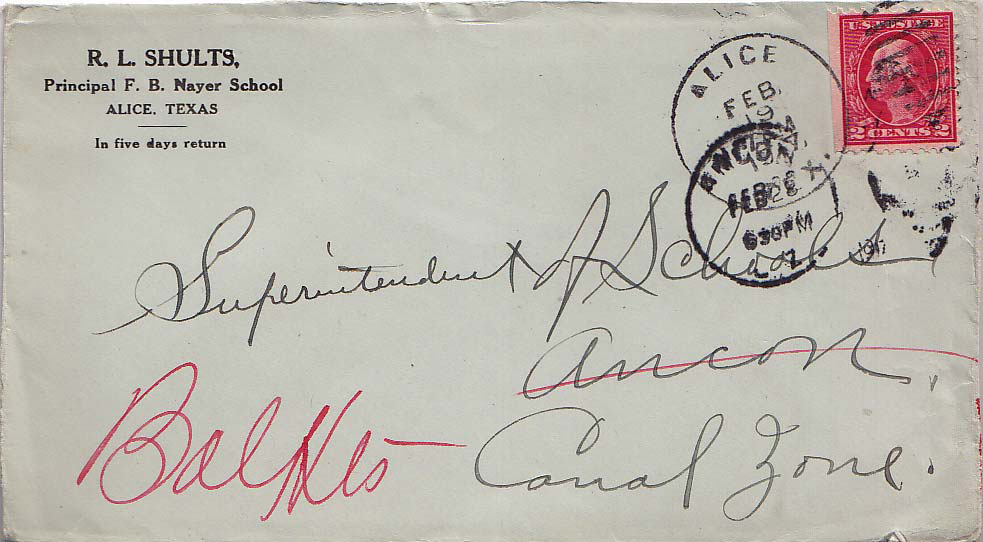 R. L. SHULTS,
Principal F. B. Nayer School
ALICE, TEXAS
In five days return
U.S. POSTAGE
2 CENTS 2
ALICE
FEB
19
TEX.
ANCON
FEB 26
630PM
Superintendent of Schools
Ancon,
Canal Zone.
Bal Hts